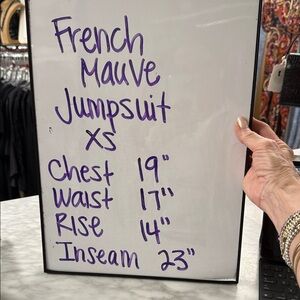 French
Mauve
Jumpsuit
XS
Chest 19"
Waist 17"
Rise 14"
Inseam 23"